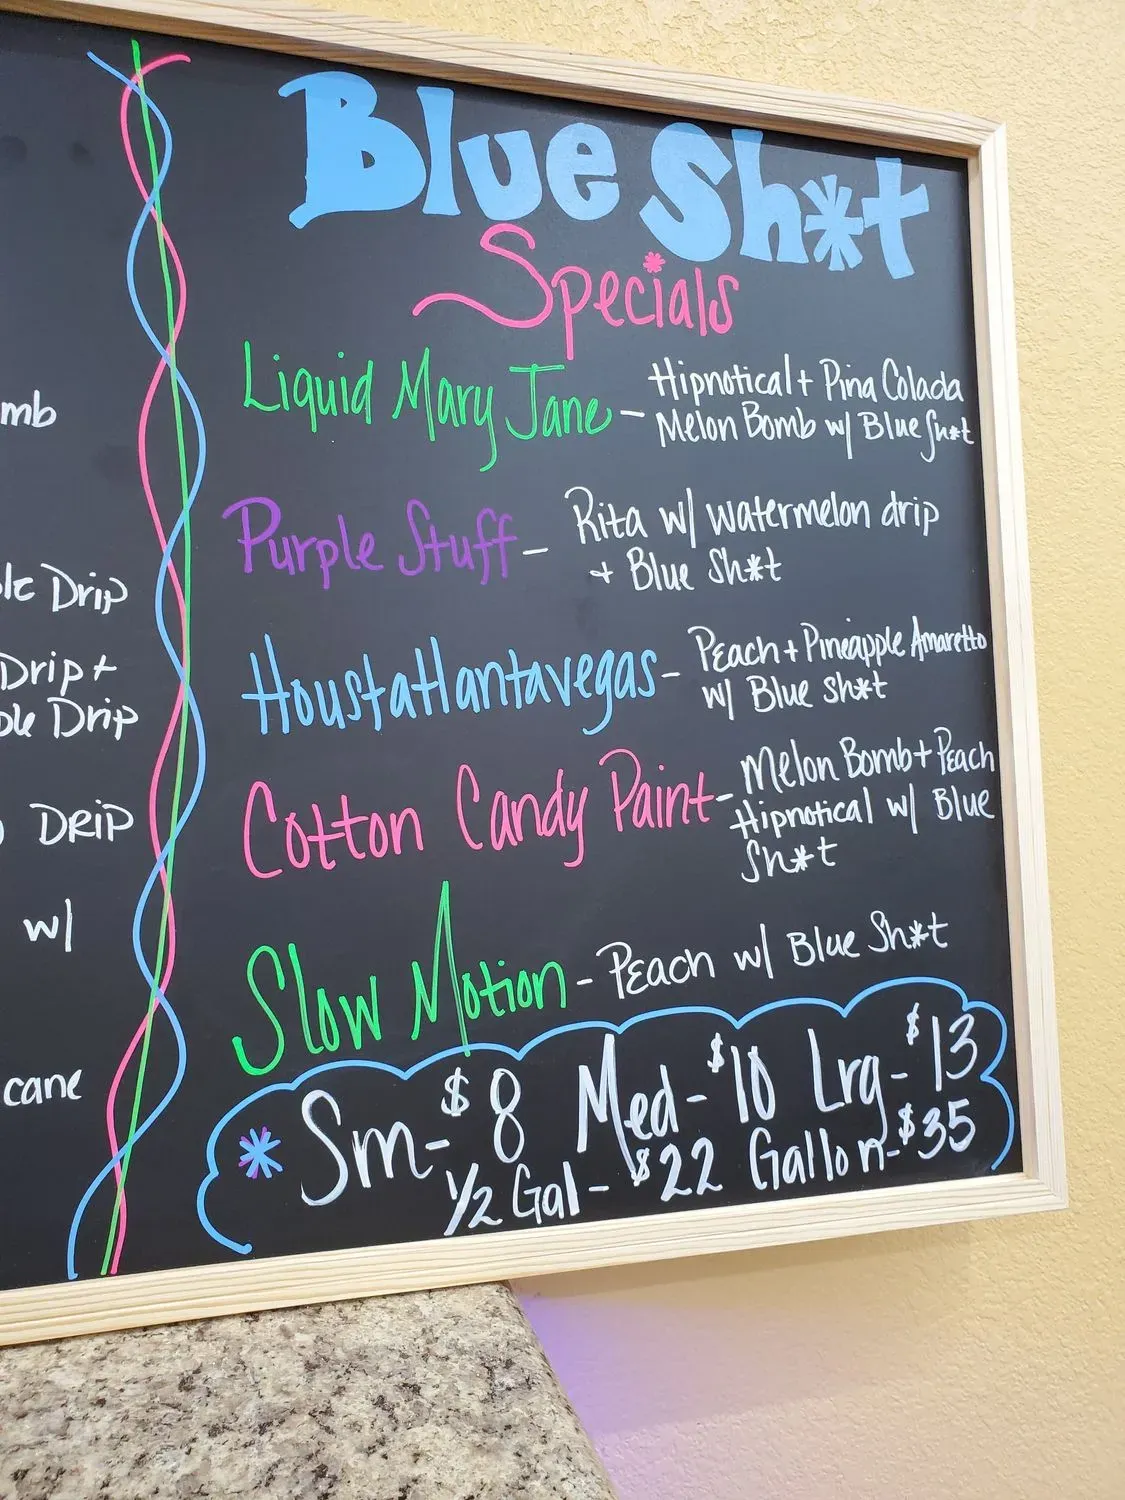 Blue Sh*t
Specials
Liquid Mary Jane - Hipnotical + Pina Colada
Melon Bomb w/ Blue Sh*t
Purple Stuff - Rita w/ watermelon drip
+ Blue Sh*t
Houstatlantavegas - Peach + Pineapple Amaretto
w/ Blue Sh*t
Cotton Candy Paint - Melon Bomb + Peach
Hipnotical w/ Blue
Sh*t
Slow Motion - Peach w/ Blue Sh*t
* Sm - $8 Med - $10 Lrg - $13
1/2 Gal - $22 Gallon - $35
mb
le Drip
Drip +
ole Drip
DRiP
w/
cane